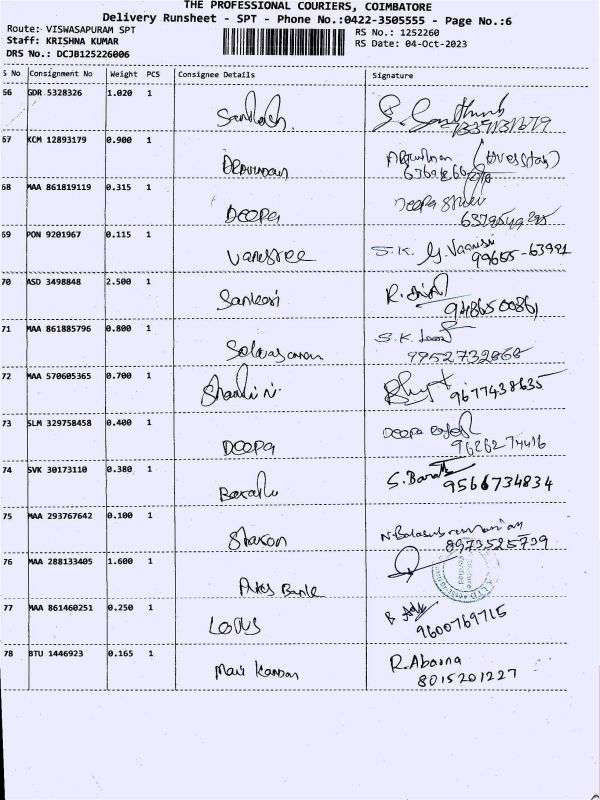 THE PROFESSIONAL COURIERS, COIMBATORE
Delivery Runsheet - SPT - Phone No.:0422-3505555 - Page No.:6
Route: VISWASAPURAM SPT
RS No.: 1252260
Staff: KRISHNA KUMAR
RS Date: 04-Oct-2023
DRS No.: DCJB125226006
S No Consignment No Weight PCS Consignee Details Signature
66 GDR 5328326 1.020 1 Santhosh.
67 KCM 12893179 0.900 1
68 MAA 861819119 0.315 1 DEEPA Deepa
69 PON 9201967 0.115 1 vanesree S.K. G. Vanisri
99655-63991
70 ASD 3498848 2.500 1 Sankari R.
9486500861
71 MAA 861885796 0.800 1 S.K.
9952732868
72 MAA 570605365 0.700 1 Shanlini N.
9677438635
73 SLM 329758458 0.400 1 DEEPA Deepa
9626274416
74 SVK 30173110 0.380 1 S. Barath
9566734834
75 MAA 293767642 0.100 1 Sharon N. Balasubramanian
8973525739
76 MAA 288133405 1.600 1 Axis Bank
77 MAA 861460251 0.250 1 LOTUS
9600769715
78 BTU 1446923 0.165 1 Mani Kandan R. Abarna
8015201227